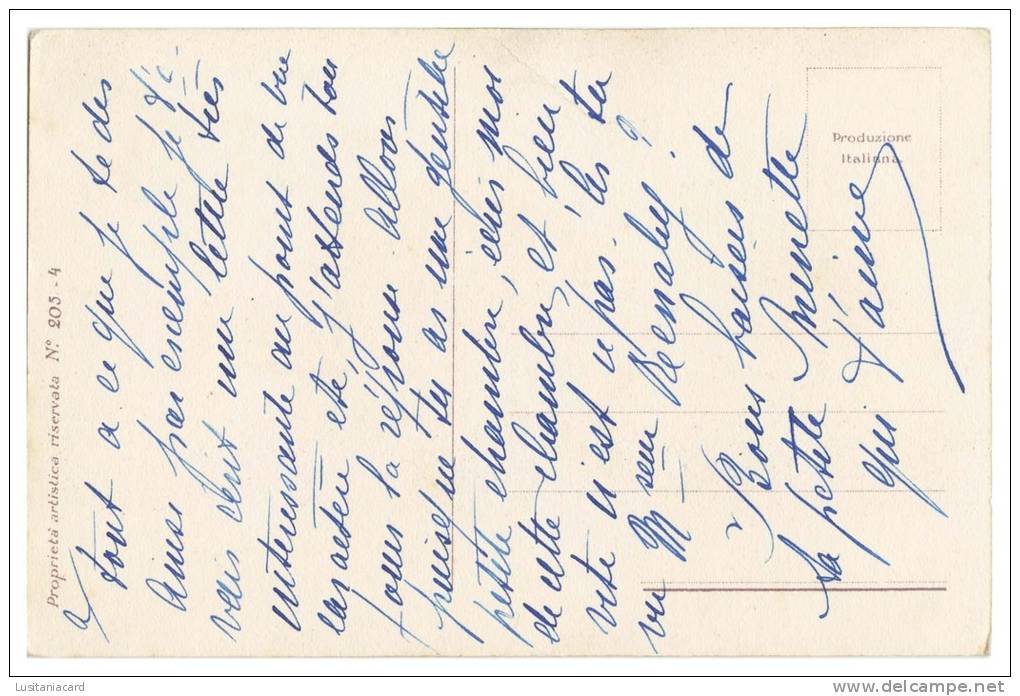 Proprietà artistica riservata N.º 205 - 4
a
tout a ce que je te dis
Ainsi par exemple je t'é-
vais écrit une lettre très
interessante au point de vue
caractère etc, j'attends ton
tous la réponse allons
puisque tu as une gentille
petite chambre, écris moi
de cette chambre, et, bien
vite n'est ce pas. As tu
vu Mseur ?
Bons baisers de
ta petite Minette
qui t'aime
Produzione
Italiana.
Lustaniacard
delcampe.net